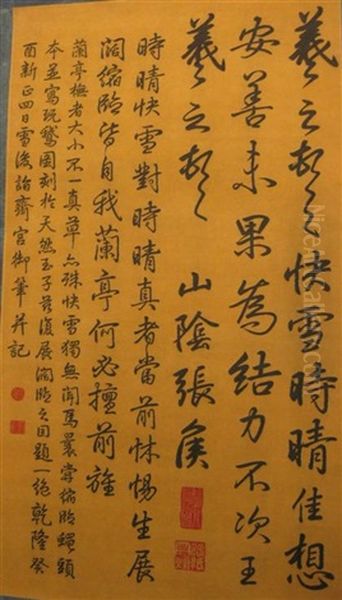 羲之頓首快雪時晴佳想
安善未果為結力不次王
羲之頓首 山陰張侯
時晴快雪對時晴真者當前怵惕生展
闊縮臨皆自我蘭亭何必擅前旌
蘭亭橅者大小不一真草亦殊快雪獨無聞焉曩嘗縮臨蠅頭
本並寫玩鵝圖刻於天然玉子茲復展闊臨之因題一絕乾隆癸
酉新正四日雪後詣齋宮御筆并記